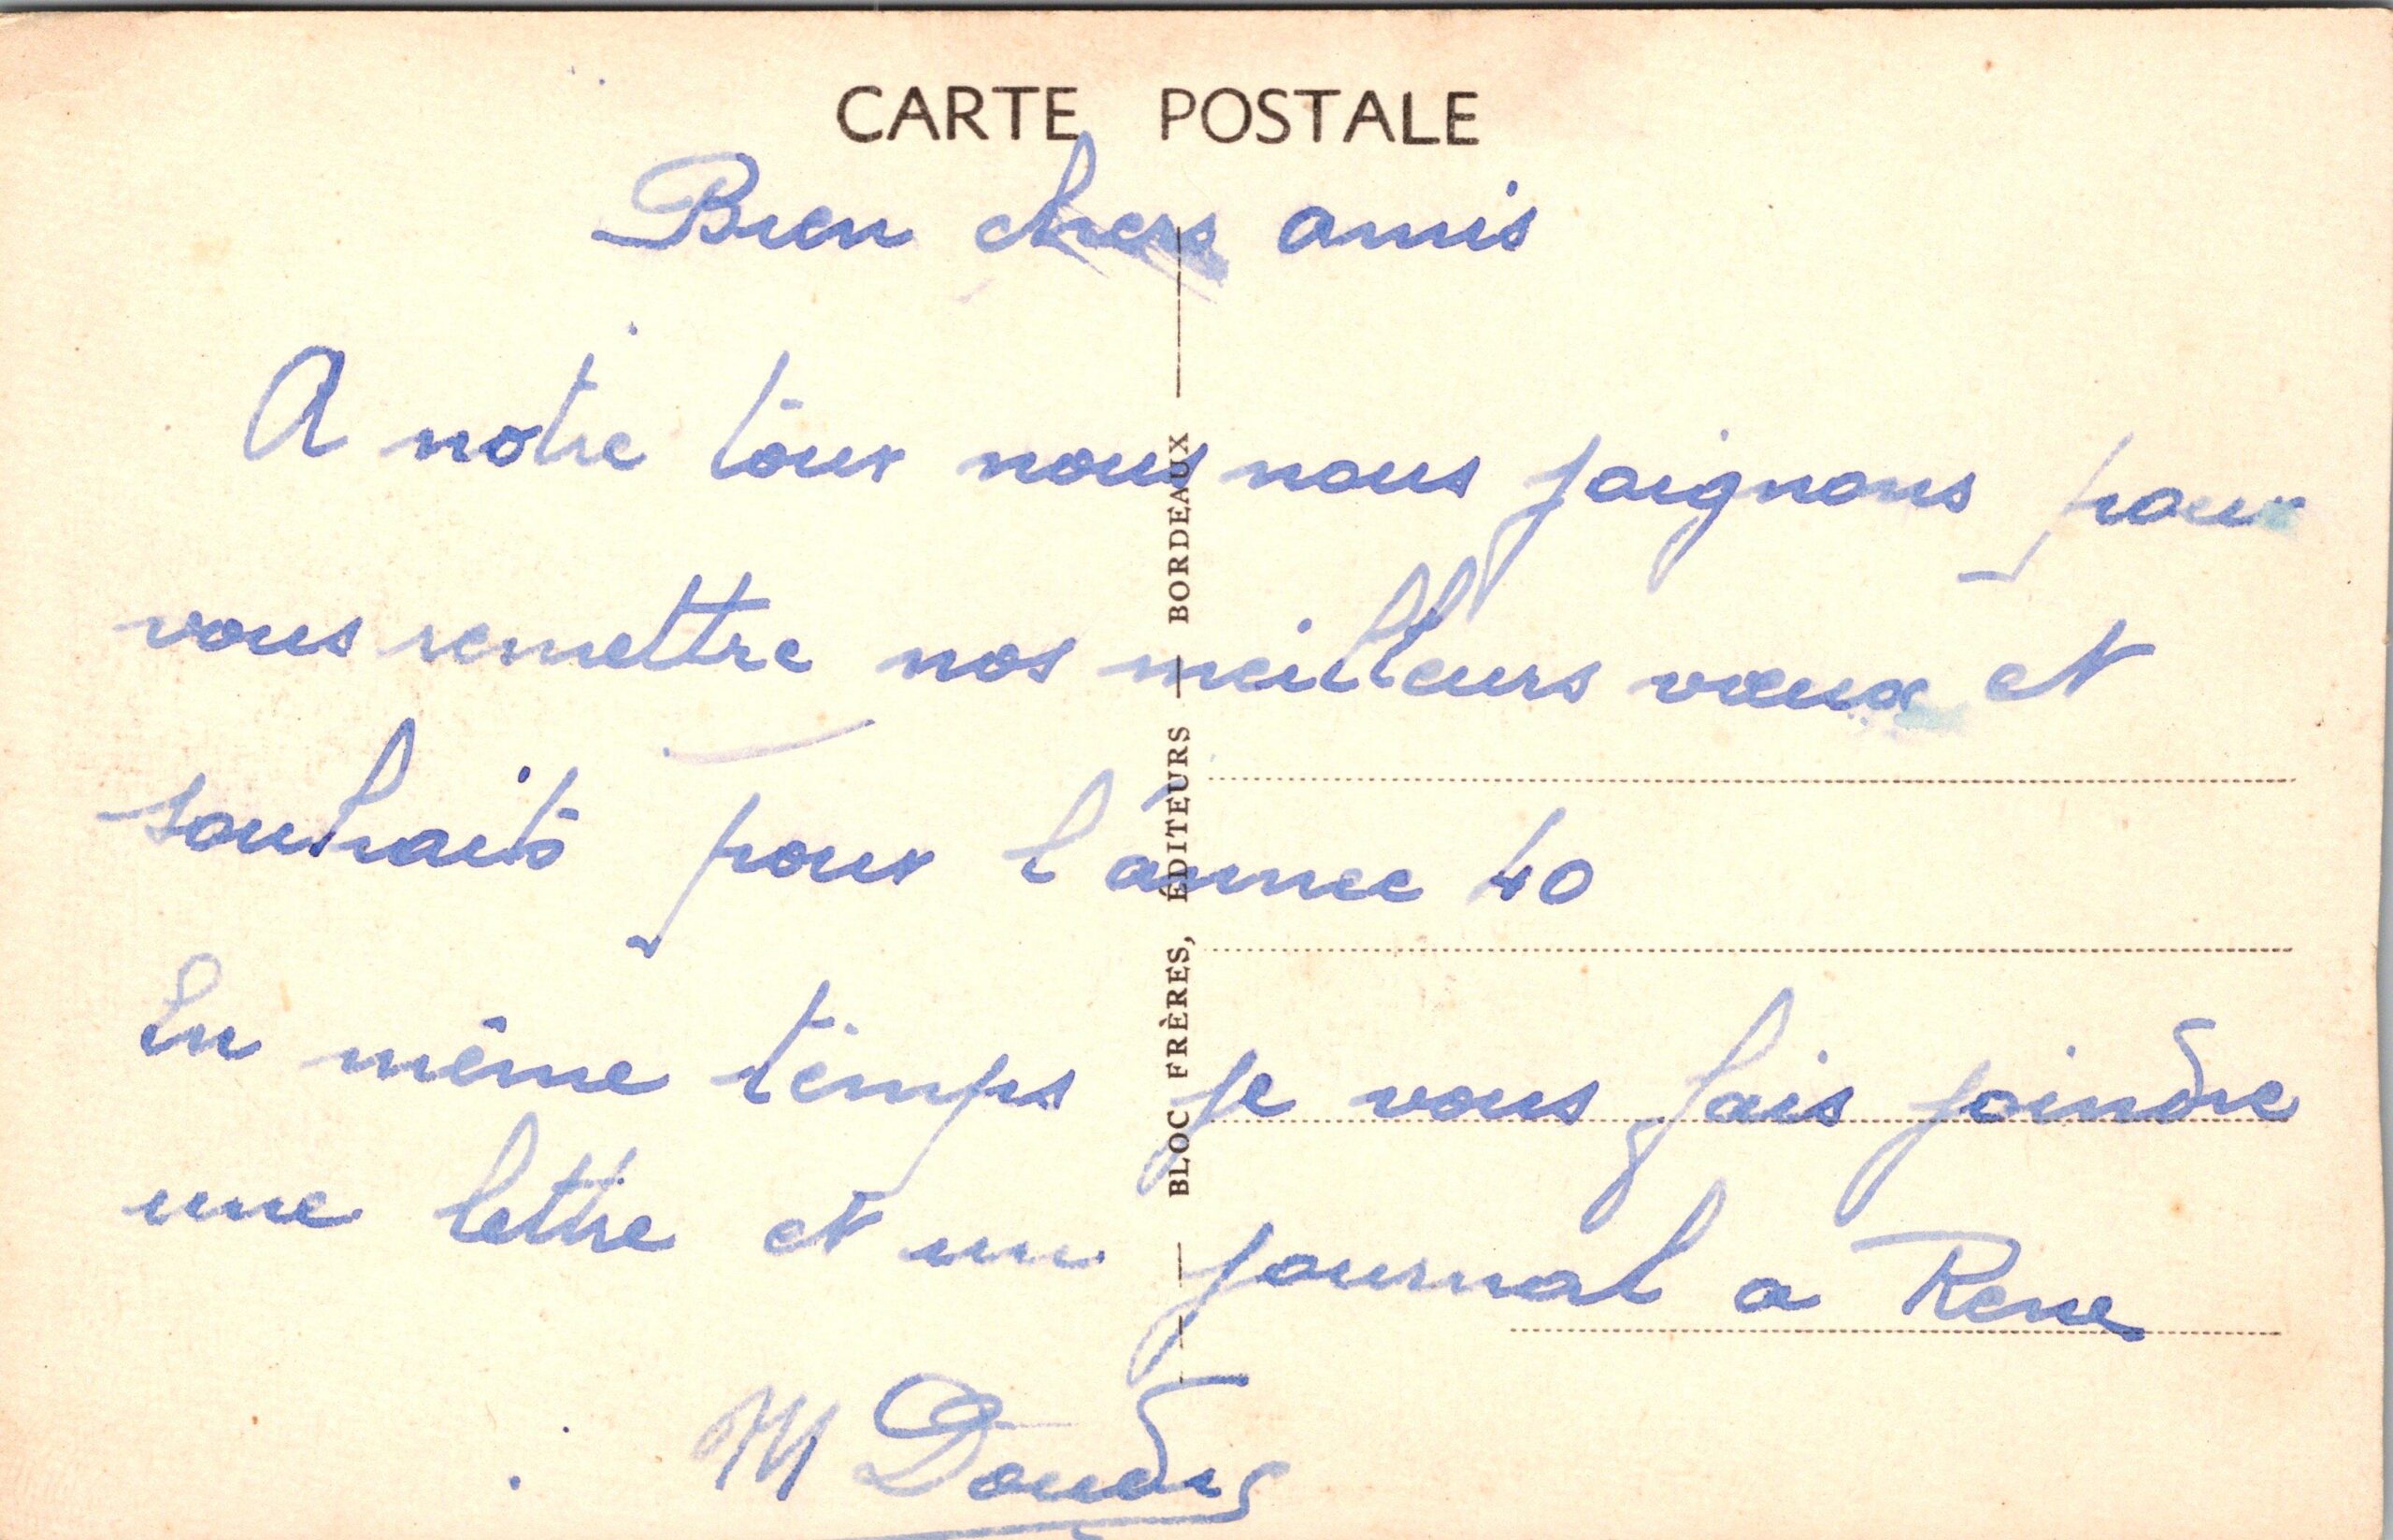 CARTE POSTALE
Bien chers amis
A notre tour nous nous joignons pour
vous remettre nos meilleurs vœux et
souhaits pour l'annee 40
En même temps je vous fais joindre
une lettre et un journal a Rene
M
BLOC FRÈRES, ÉDITEURS — BORDEAUX